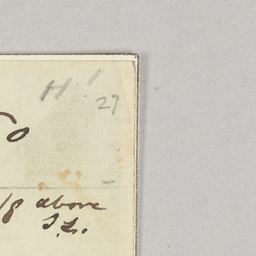 H!
27
o
/8 above
S.L.